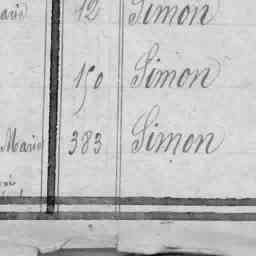 12 Simon
150 Simon
Marie 383 Simon